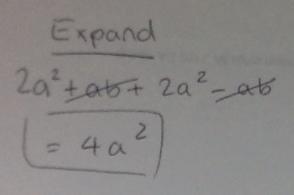 Expand
2a² + ab + 2a² - ab
= 4a²